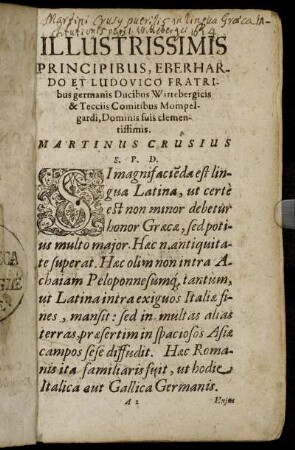 Martini Crusij puerilis in lingua Græca In-
stitutionis pars
ILLUSTRISSIMIS
PRINCIPIBUS, EBERHAR-
DO ET LUDOVICO FRATRI-
bus germanis Ducibus Wirtebergicis
& Tecciis Comitibus Mompel-
gardi, Dominis suis clemen-
tissimis.
MARTINUS CRUSIUS
S. P. D.
SI magnifaciẽda est lin-
gua Latina, ut certè
est non minor debetur
honor Græcæ, sed poti-
us multo major. Hæc n. antiquita-
te superat. Hæc olim non intra A-
chaiam Peloponnesumq́, tantum,
ut Latina intra exiguos Italiæ fi-
nes, mansit: sed in multas alias
terras, præsertim in spaciosos Asiæ
campos sese diffudit. Hæc Roma-
nis ita familiaris fuit, ut hodie
Italica aut Gallica Germanis.
A 2 Enim